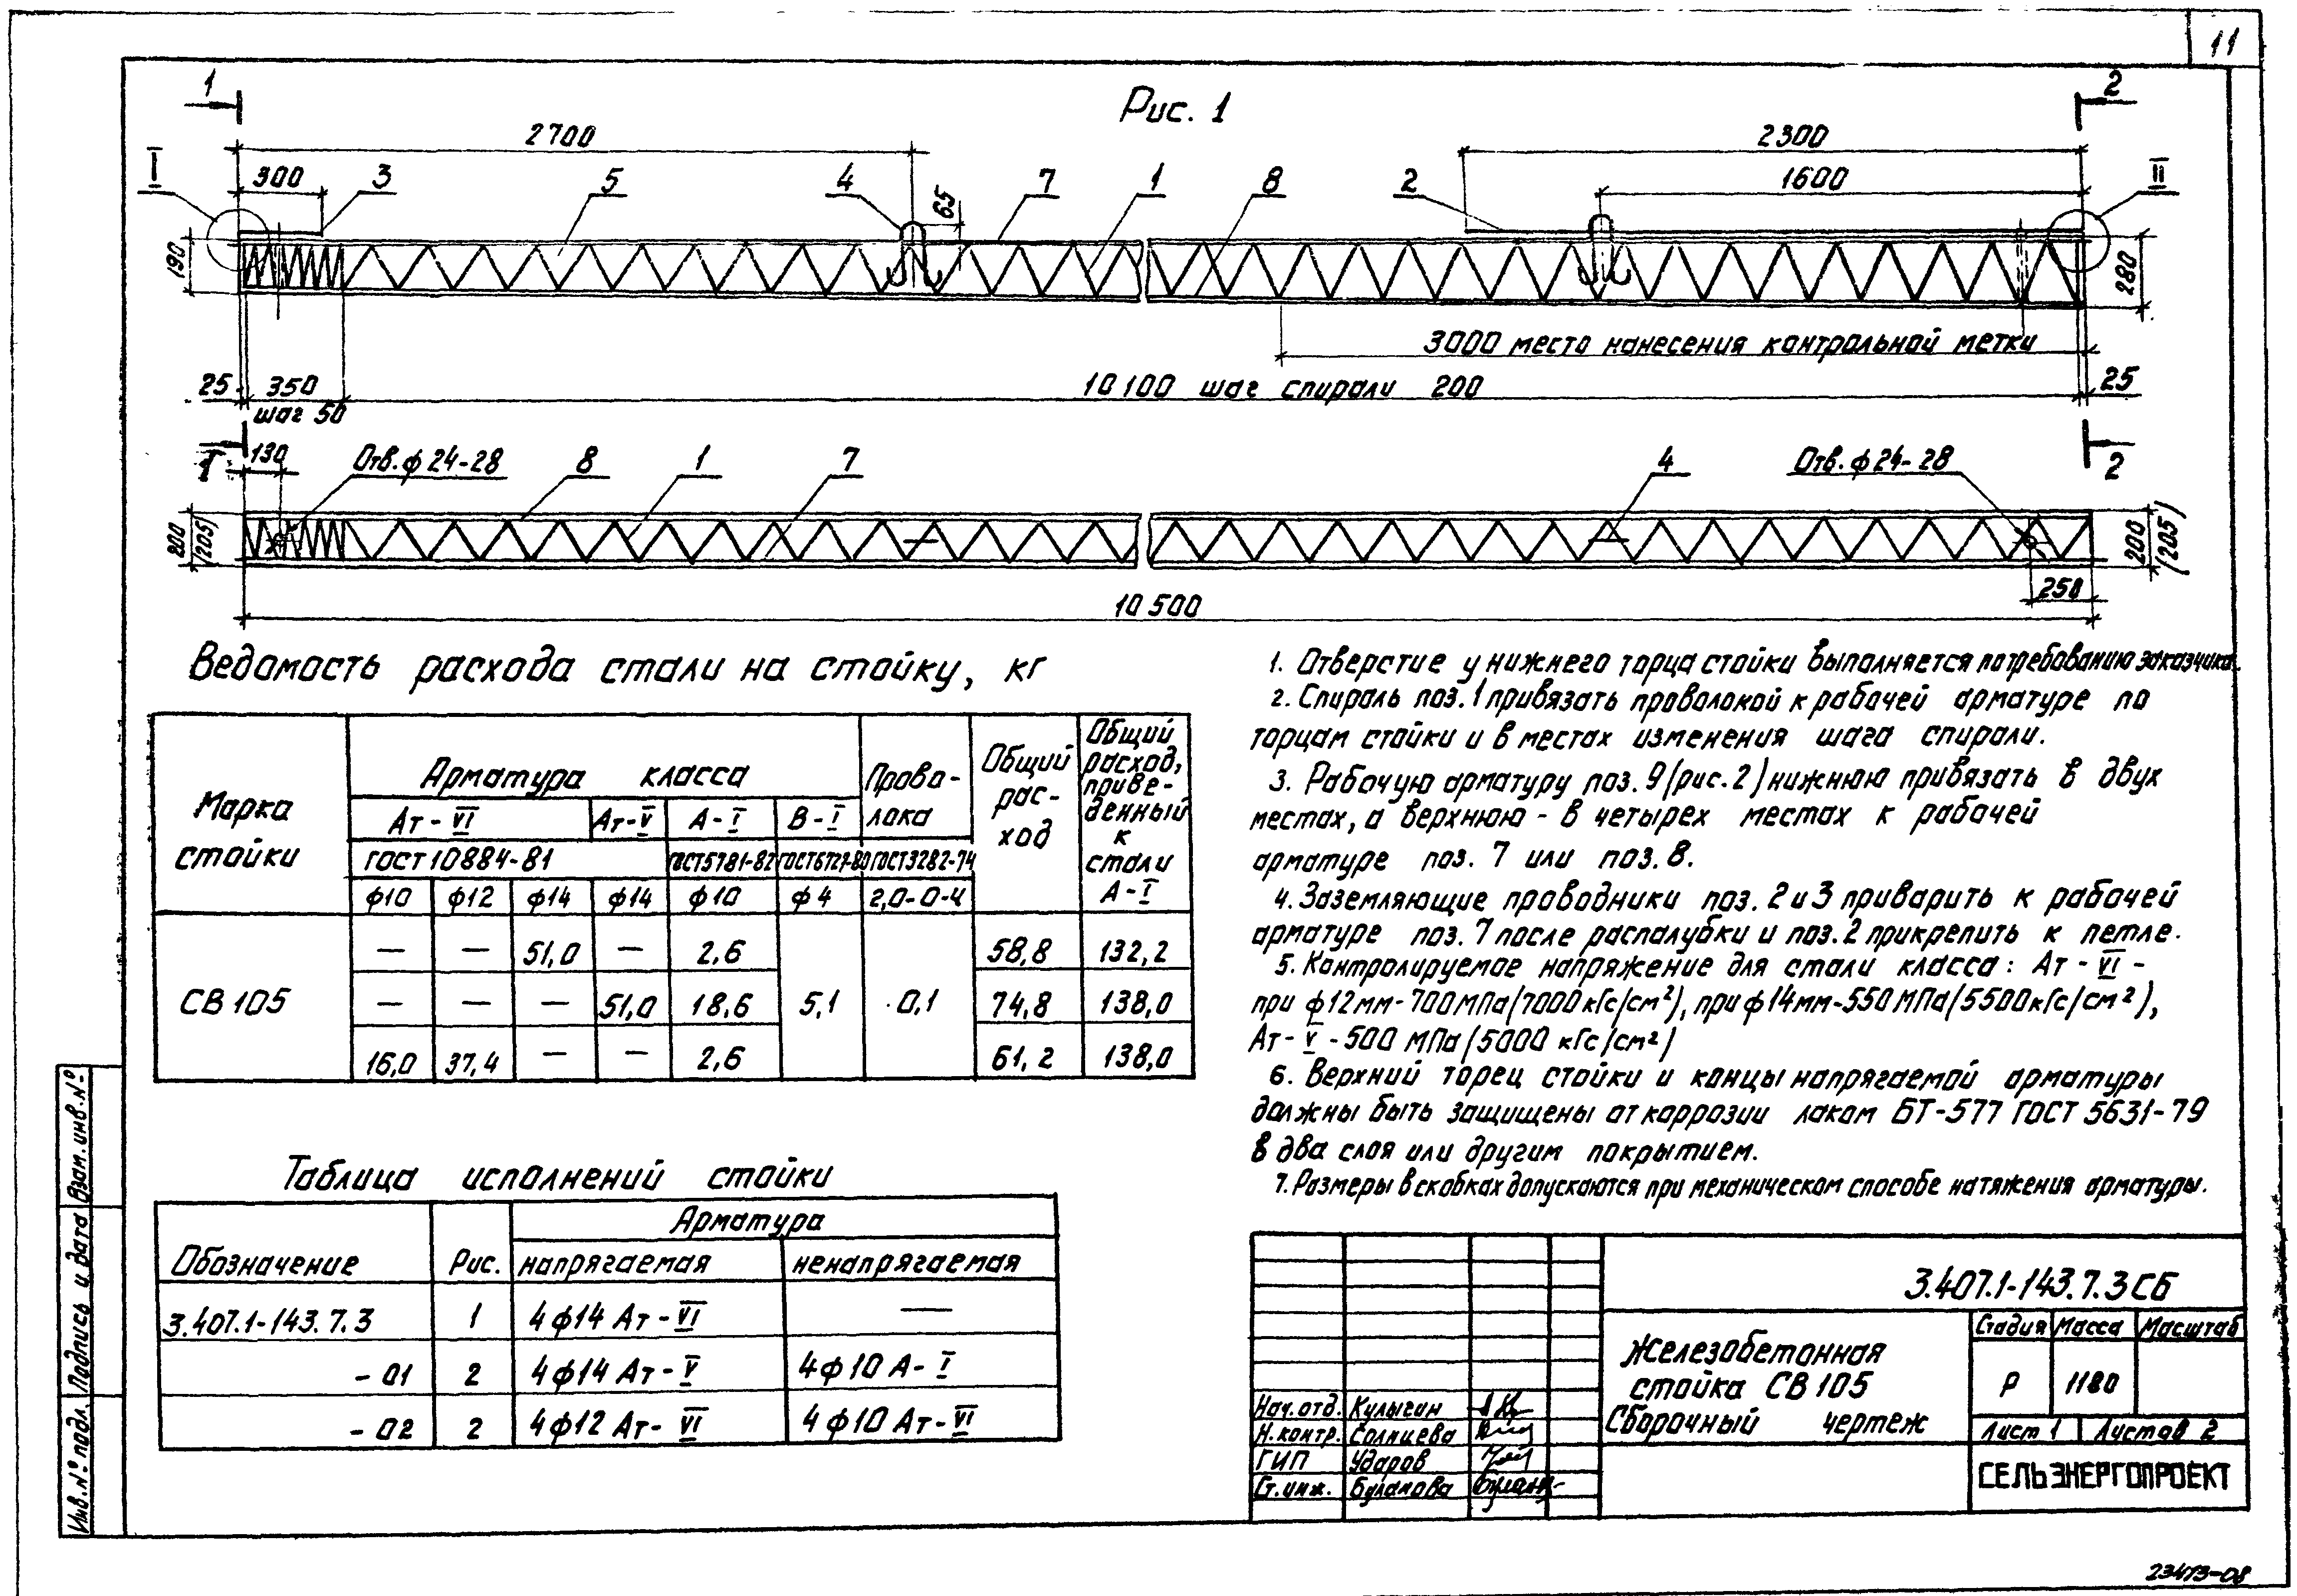 11
Рис. 1
1
2
2700
2300
I
300
3
5
4
65
7
1
8
2
1600
II
190
280
3000 место нанесения контрольной метки
25
350
10 100 шаг спирали 200
25
шаг 50
1
130
Отв. ф 24-28
8
1
7
4
Отв. ф 24-28
2
200
(205)
200
(205)
250
10 500
Ведомость расхода стали на стойку, кг
Марка стойки
Арматура класса
Прово-
лока
Общий
рас-
ход
Общий
расход,
приве-
денный
к
стали
А-I
Ат-VI
Ат-V
А-I
В-I
ГОСТ 10884-81
ГОСТ 5781-82
ГОСТ 6727-80
ГОСТ 3282-74
ф10 ф12 ф14 ф14 ф10 ф4 2,0-0-4
СВ 105
— — 51,0 — 2,6 58,8 132,2
— — — 51,0 18,6 5,1 0,1 74,8 138,0
16,0 37,4 — — 2,6 61,2 138,0
1. Отверстие у нижнего торца стойки выполняется по требованию заказчика.
2. Спираль поз. 1 привязать проволокой к рабочей арматуре по
торцам стойки и в местах изменения шага спирали.
3. Рабочую арматуру поз. 9 (рис. 2) нижнюю привязать в двух
местах, а верхнюю - в четырех местах к рабочей
арматуре поз. 7 или поз. 8.
4. Заземляющие проводники поз. 2 и 3 приварить к рабочей
арматуре поз. 7 после распалубки и поз. 2 прикрепить к петле.
5. Контролируемое напряжение для стали класса: Ат-VI -
при ф12мм-700МПа (7000кГс/см²), при ф14мм-550МПа (5500кГс/см²),
Ат-V - 500 МПа (5000 кГс/см²)
6. Верхний торец стойки и концы напрягаемой арматуры
должны быть защищены от коррозии лаком БТ-577 ГОСТ 5631-79
в два слоя или другим покрытием.
7. Размеры в скобках допускаются при механическом способе натяжения арматуры.
Таблица исполнений стойки
Обозначение
Рис.
Арматура
напрягаемая
ненапрягаемая
3.407.1-143.7.3 1 4ф14 Ат-VI —
- 01 2 4ф14 Ат-V 4ф10 А-I
- 02 2 4ф12 Ат-VI 4ф10 Ат-VI
3.407.1-143.7.3 СБ
Железобетонная
стойка СВ 105
Сборочный чертеж
Стадия Масса Масштаб
Р 1180
Лист 1 Листов 2
СЕЛЬЭНЕРГОПРОЕКТ
Нач. отд. Кулыгин
Н. контр. Солнцева
ГИП Ударов
Ст. инж. Буланова
Инв. № подл. Подпись и дата Взам. инв. №
23473-08